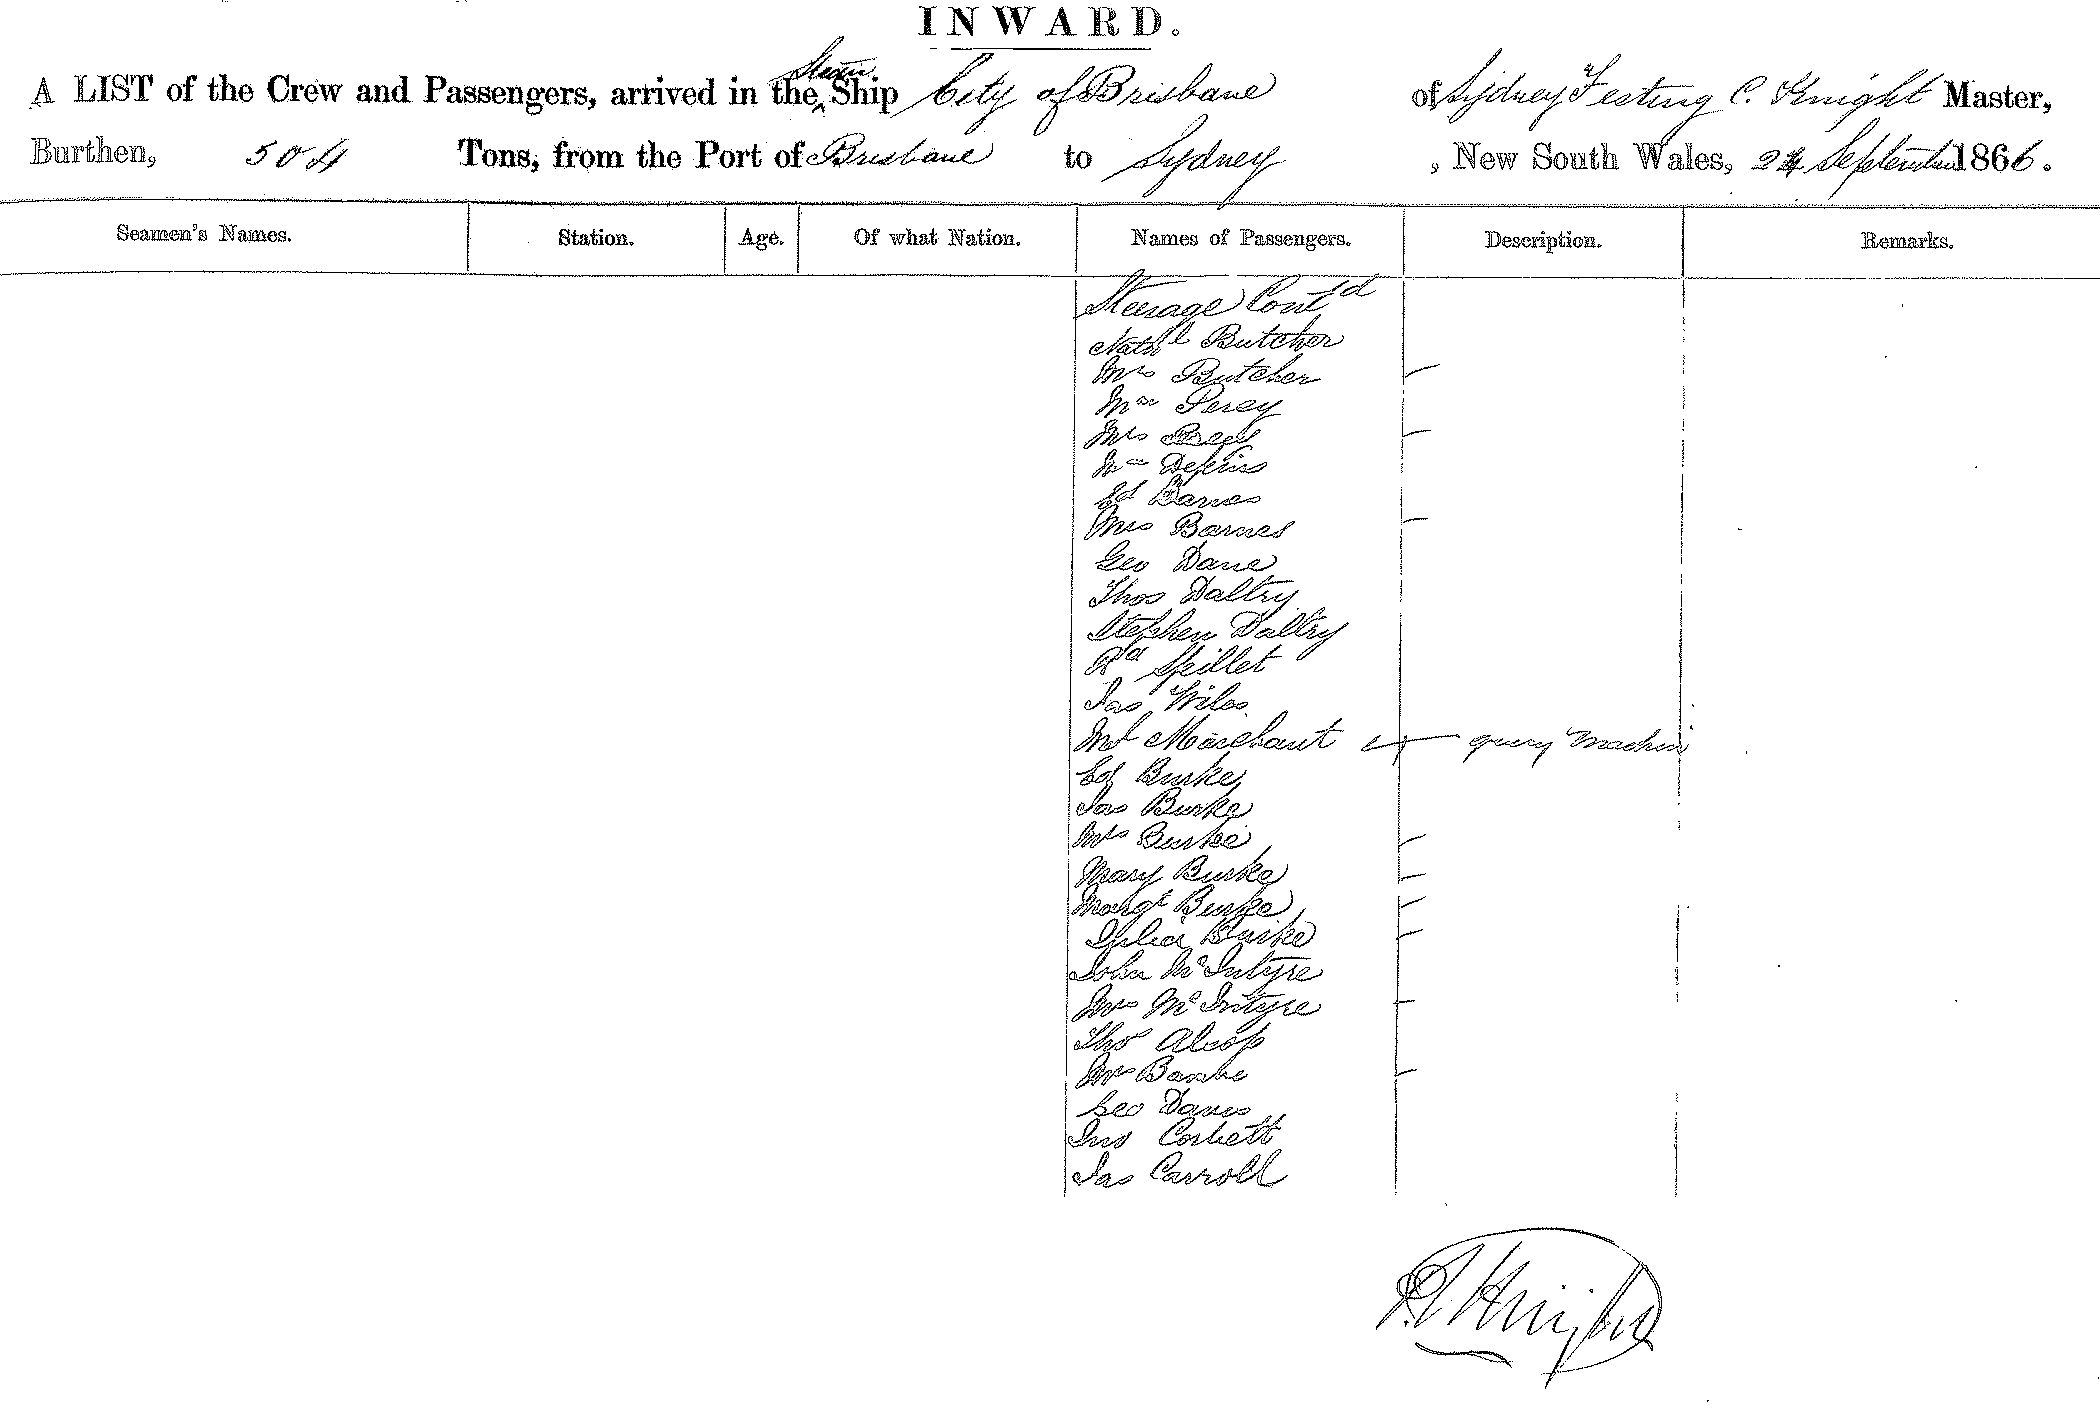 INWARD.
A LIST of the Crew and Passengers, arrived in the Steam Ship City of Brisbane of Sydney Festing C. Knight Master,
Burthen, 504 Tons, from the Port of Brisbane to Sydney, New South Wales, 24 September 1866.
Seamen's Names. Station. Age. Of what Nation. Names of Passengers. Description. Remarks.
Steerage Contd
Nathl Butcher
Mrs Butcher
Percy
Mrs
Wm
Ed
Mrs Barnes
Geo Dane
Thos Daltry
Stephen Daltry
Rd Spillet
Jas Wiles
Merchant query
Ed Burke
Jas Burke
Mrs Burke
Mary Burke
Margt Burke
Julia Burke
John McIntyre
Mrs McIntyre
Thos Alsop
Mrs
Geo Davis
Jno Corbett
Jas Carroll
Knight